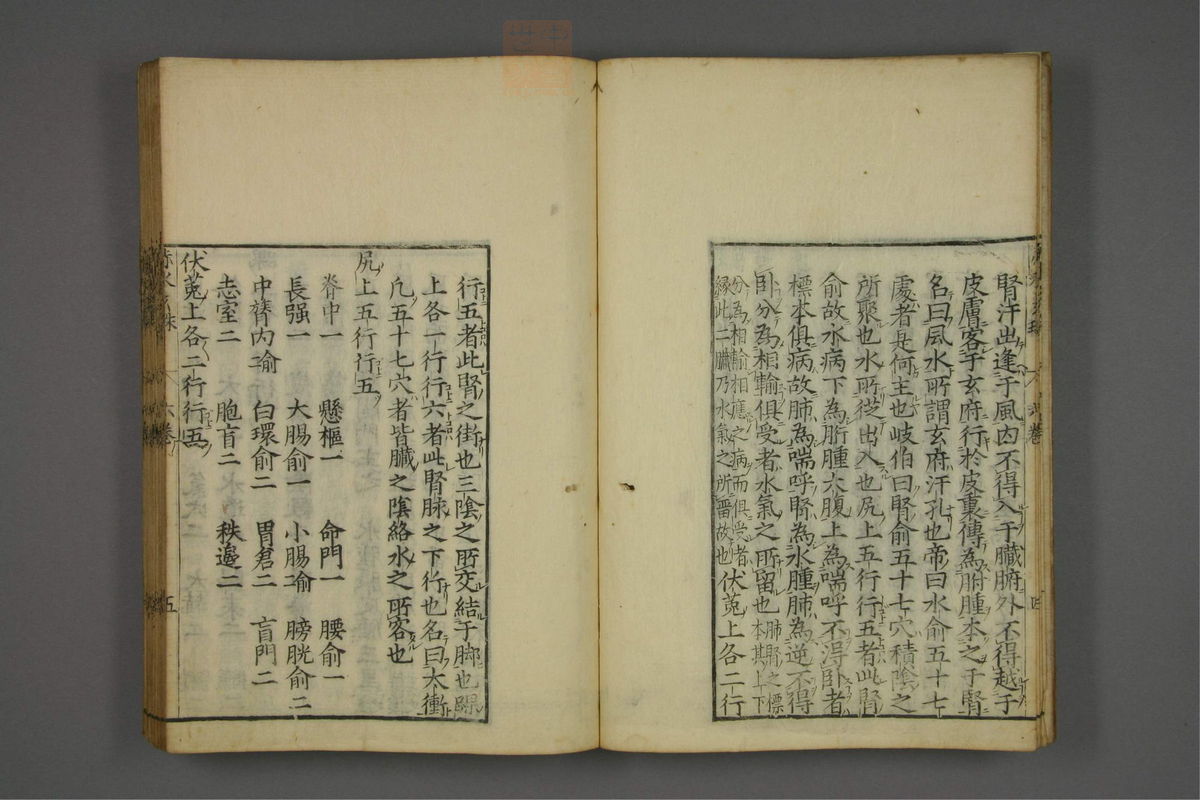 腎汗出逢于風内不得入于臓腑外不得越于
皮膚客于玄府行於皮裏傳為胕腫本之于腎
名曰風水所謂玄府汗孔也帝曰水俞五十七
處者是何主也岐伯曰腎俞五十七穴積陰之
所聚也水所從出入也尻上五行行五者此腎
俞故水病下為胻腫大腹上為喘呼不得卧者
標本俱病故肺為喘呼腎為水腫肺為逆不得
卧分為相輸俱受者水氣之所留也
肺腎之標
本其上下
分為相輸相應之病而俱受者
縁此二臓乃水氣之所畱故也
伏莵上各二行
行五者此腎之街也三陰之所交結于脚也踝
上各一行行六者此腎脉之下行也名曰太衝
凢五十七穴者皆臓之陰絡水之所客也
尻上五行行五
脊中一 懸樞一 命門一 腰俞一
長强一 大腸俞一 小腸俞 膀胱俞二
中膂内瑜 白環俞二 胃倉二 肓門二
志室二 胞肓二 秩邊二
伏莵上各二行行五
赤水玄珠 六卷 五